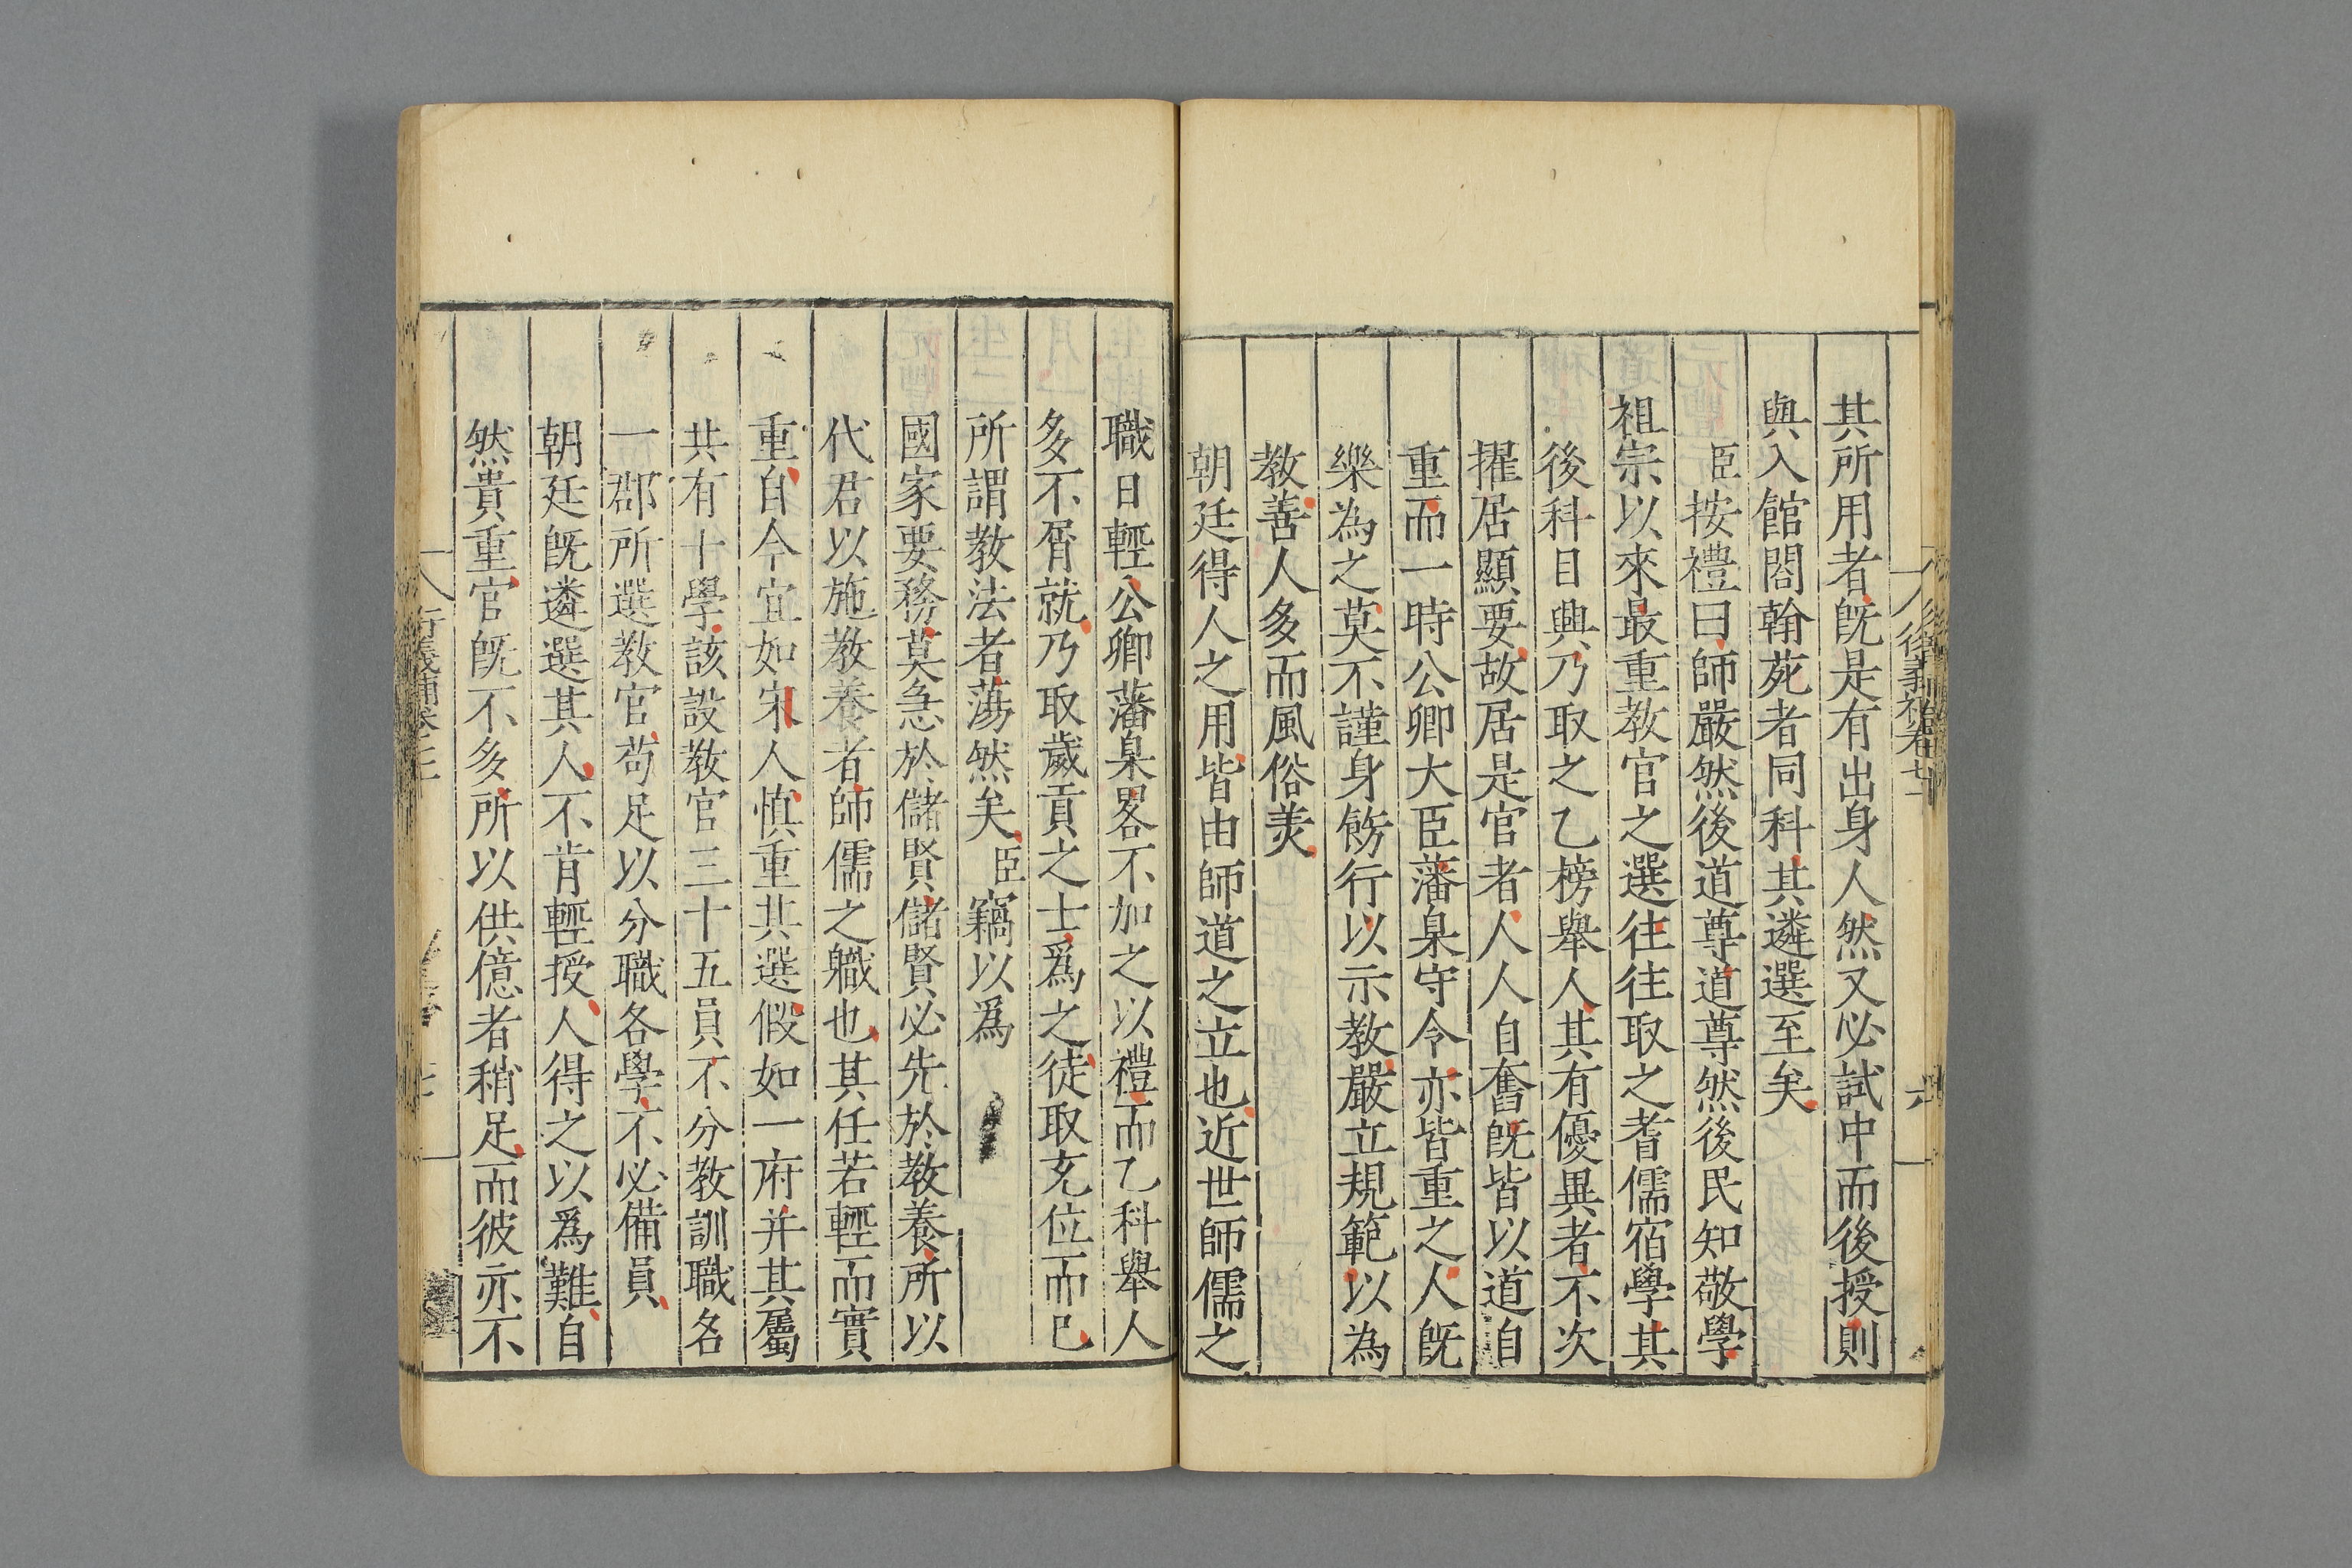 其所用者旣是有出身人然又必試中而後授則
與入館閣翰苑者同科其遴選至矣
臣按禮曰師嚴然後道尊道尊然後民知敬學
祖宗以來最重教官之選往往取之耆儒宿學其
後科目興乃取之乙榜舉人其有優異者不次
擢居顯要故居是官者人人自奮旣皆以道自
重而一時公卿大臣藩臬守令亦皆重之人旣
樂為之莫不謹身飭行以示教嚴立規範以為
教善人多而風俗羙
朝廷得人之用皆由師道之立也近世師儒之
職日輕公卿藩臬畧不加之以禮而乙科舉人
多不屑就乃取歲貢之士爲之徒取充位而已
所謂教法者蕩然矣臣竊以爲
國家要務莫急於儲賢儲賢必先於教養所以
代君以施教養者師儒之職也其任若輕而實
重自今宜如宋人慎重其選假如一府并其屬
共有十學該設教官三十五員不分教訓職名
一郡所選教官苟足以分職各學不必備員
朝廷旣遴選其人不肯輕授人得之以爲難自
然貴重官旣不多所以供億者稍足而彼亦不